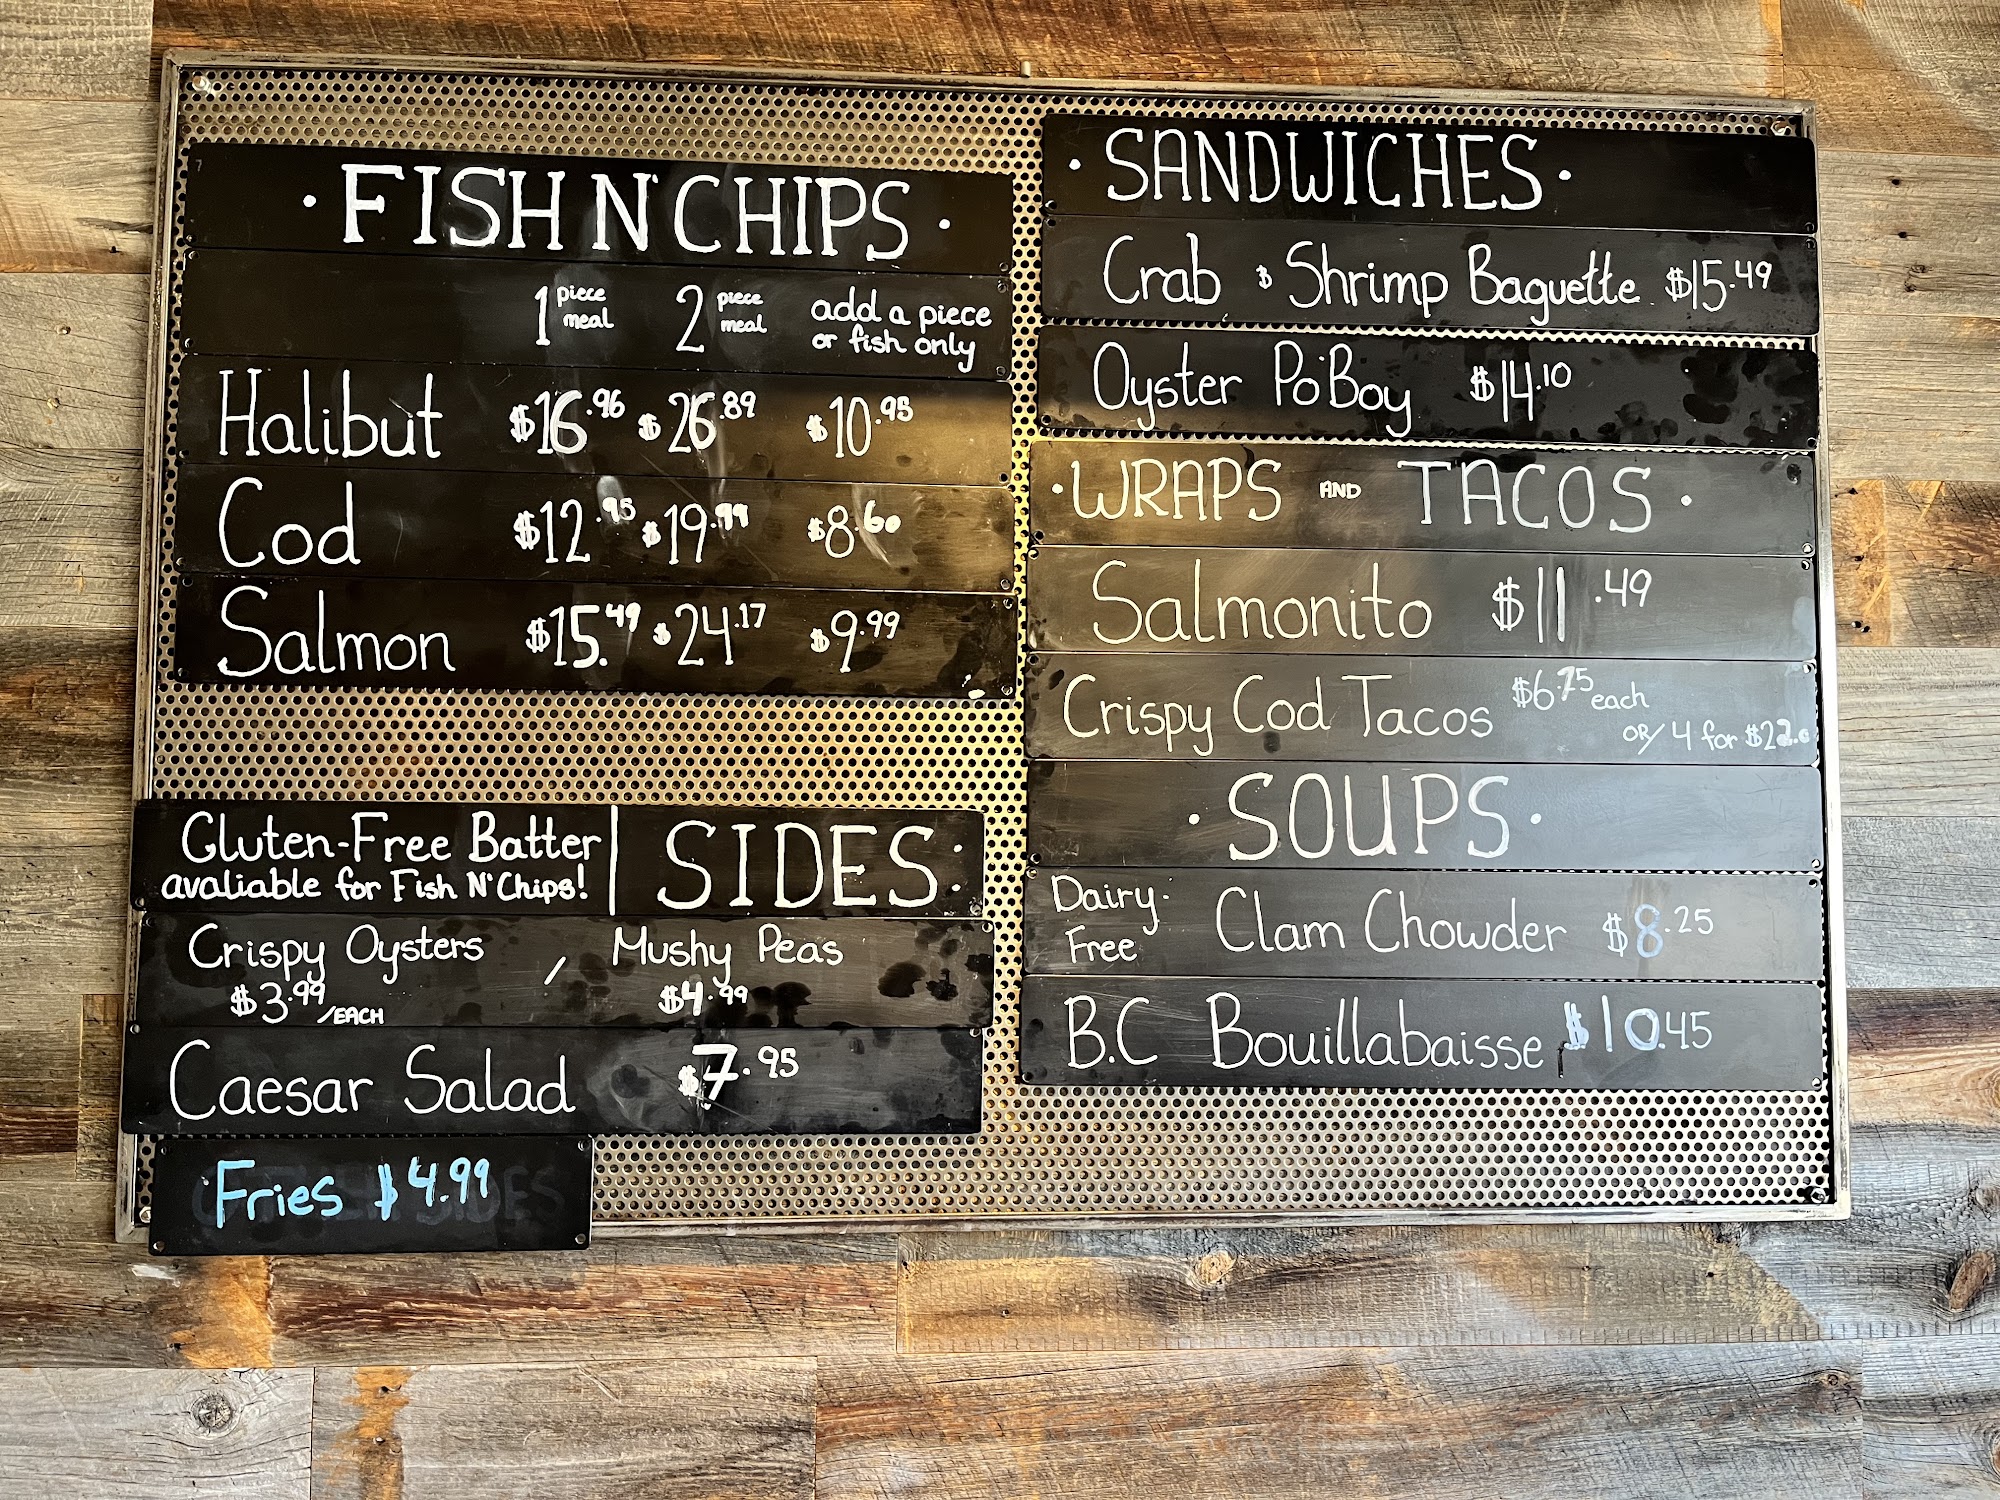 · FISH N' CHIPS ·
1 piece meal 2 piece meal add a piece or fish only
Halibut $16.96 $26.89 $10.95
Cod $12.95 $19.99 $8.60
Salmon $15.49 $24.17 $9.99
Gluten-Free Batter
avaliable for Fish N' Chips!
SIDES·
Crispy Oysters / Mushy Peas
$3.99/EACH $4.99
Caesar Salad $7.95
Fries $4.99
· SANDWICHES ·
Crab & Shrimp Baguette $15.49
Oyster Po'Boy $14.10
· WRAPS AND TACOS ·
Salmonito $11.49
Crispy Cod Tacos $6.75 each
OR/ 4 for
· SOUPS ·
Dairy-Free Clam Chowder $8.25
B.C Bouillabaisse $10.45